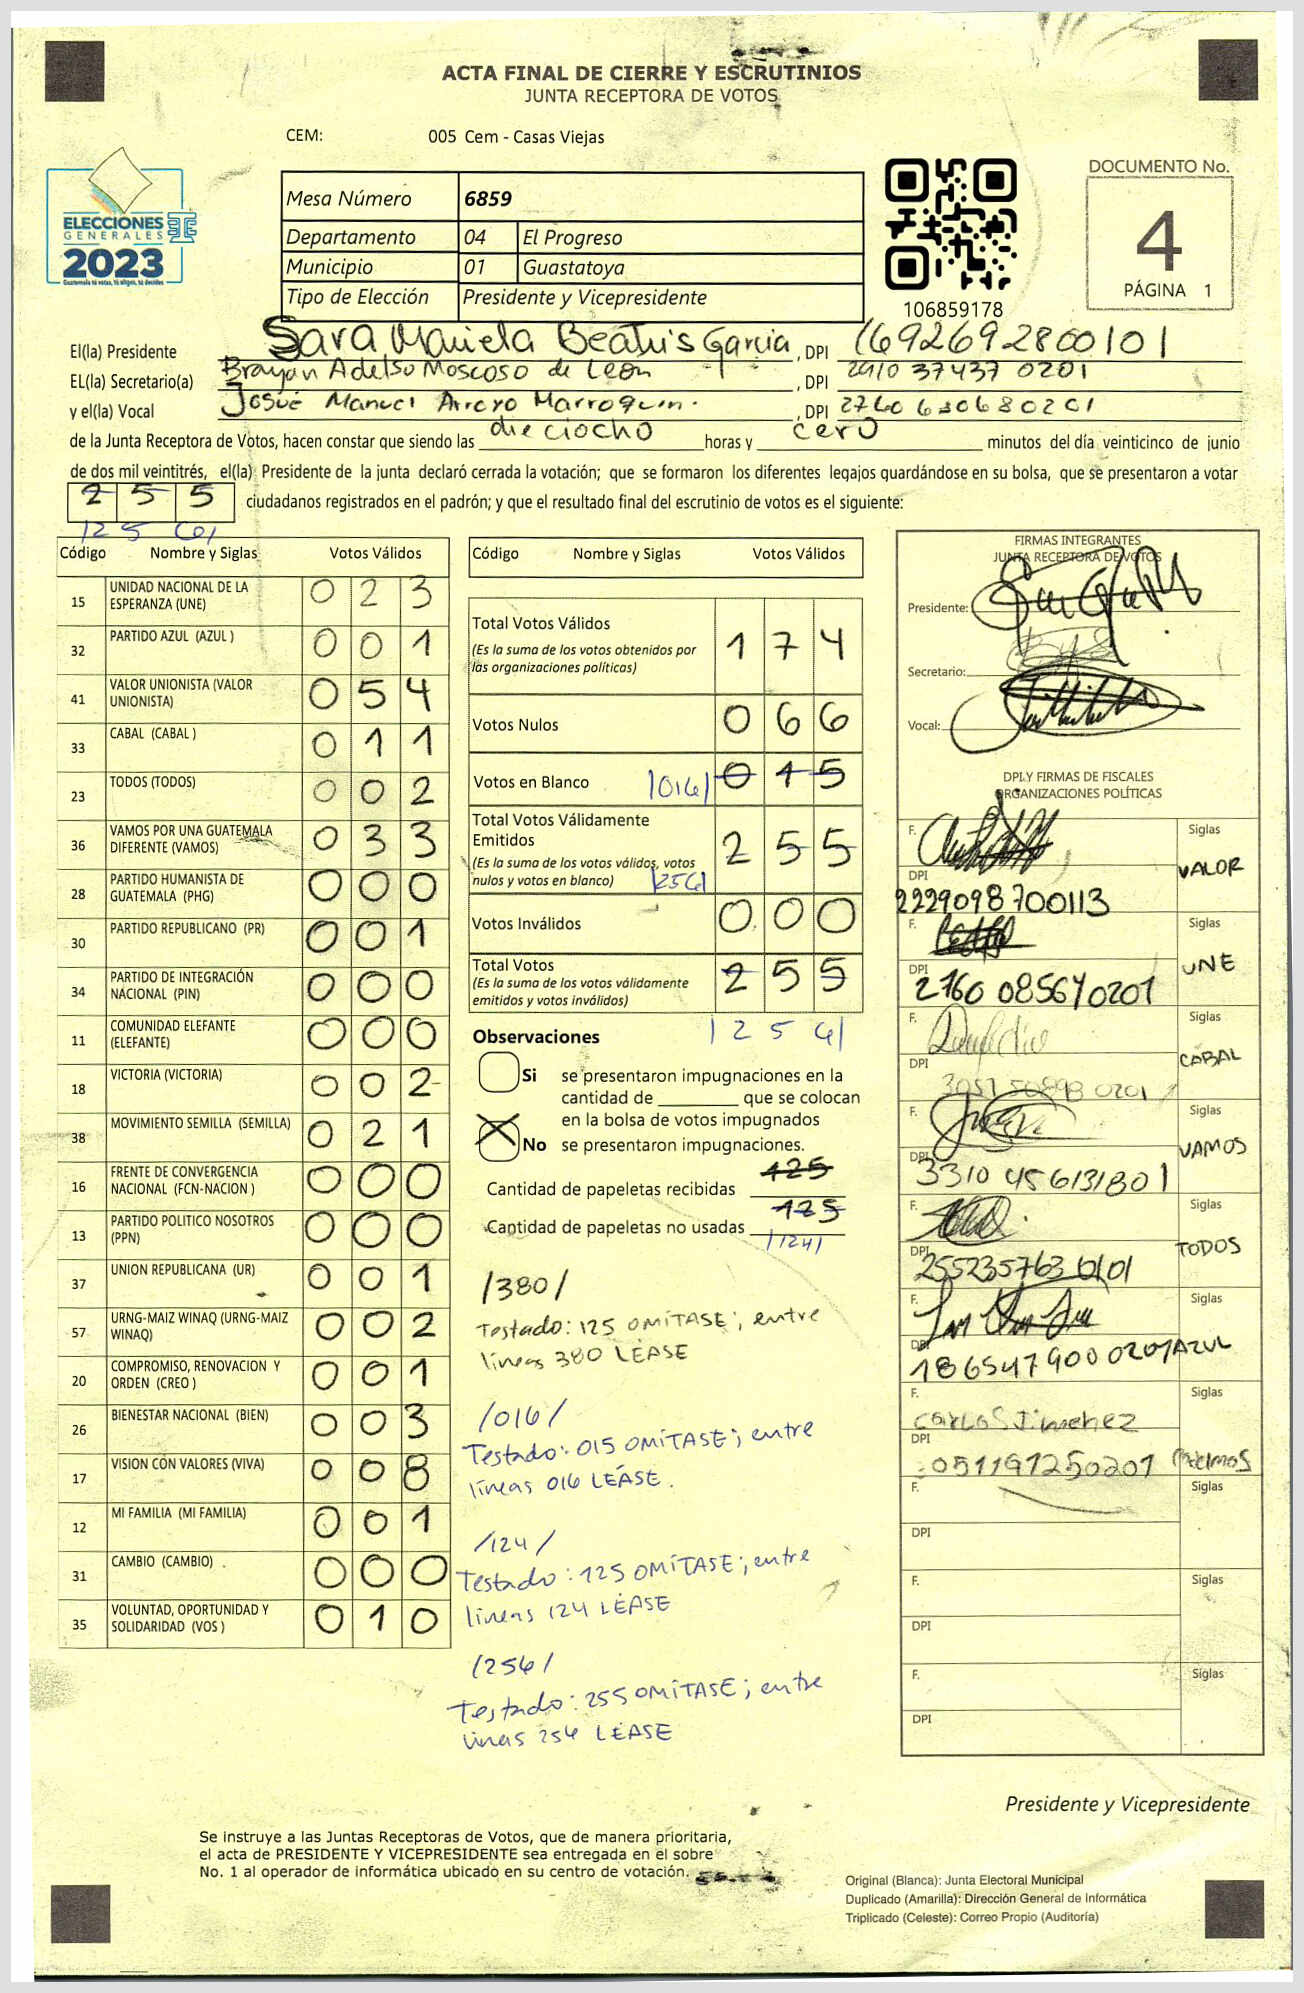 ACTA FINAL DE CIERRE Y ESCRUTINIOS
JUNTA RECEPTORA DE VOTOS
CEM: 005 Cem - Casas Viejas
ELECCIONES
GENERALES
2023
Guatemala tú votas, tú eliges, tú decides
Mesa Número 6859
Departamento 04 El Progreso
Municipio 01 Guastatoya
Tipo de Elección Presidente y Vicepresidente
106859178
DOCUMENTO No.
4
PÁGINA 1
El(la) Presidente Sara Mariela Beatris Garcia, DPI 1692692800101
EL(la) Secretario(a) Brayan Adelso Moscoso de León, DPI 2910 37437 0201
y el(la) Vocal Josué Manuel Arroyo Marroquin. , DPI 2760 630680201
de la Junta Receptora de Votos, hacen constar que siendo las dieciocho horas y cero minutos del día veinticinco de junio
de dos mil veintitrés, el(la) Presidente de la junta declaró cerrada la votación; que se formaron los diferentes legajos guardándose en su bolsa, que se presentaron a votar
255 ciudadanos registrados en el padrón; y que el resultado final del escrutinio de votos es el siguiente:
/256/
Código Nombre y Siglas Votos Válidos
15 UNIDAD NACIONAL DE LA ESPERANZA (UNE) 023
32 PARTIDO AZUL (AZUL ) 001
41 VALOR UNIONISTA (VALOR UNIONISTA) 054
33 CABAL (CABAL ) 011
23 TODOS (TODOS) 002
36 VAMOS POR UNA GUATEMALA DIFERENTE (VAMOS) 033
28 PARTIDO HUMANISTA DE GUATEMALA (PHG) 000
30 PARTIDO REPUBLICANO (PR) 001
34 PARTIDO DE INTEGRACIÓN NACIONAL (PIN) 000
11 COMUNIDAD ELEFANTE (ELEFANTE) 000
18 VICTORIA (VICTORIA) 002
38 MOVIMIENTO SEMILLA (SEMILLA) 021
16 FRENTE DE CONVERGENCIA NACIONAL (FCN-NACION ) 000
13 PARTIDO POLITICO NOSOTROS (PPN) 000
37 UNION REPUBLICANA (UR) 001
57 URNG-MAIZ WINAQ (URNG-MAIZ WINAQ) 002
20 COMPROMISO, RENOVACION Y ORDEN (CREO ) 001
26 BIENESTAR NACIONAL (BIEN) 003
17 VISION CON VALORES (VIVA) 008
12 MI FAMILIA (MI FAMILIA) 001
31 CAMBIO (CAMBIO) 000
35 VOLUNTAD, OPORTUNIDAD Y SOLIDARIDAD (VOS ) 010
Código Nombre y Siglas Votos Válidos
Total Votos Válidos 174
(Es la suma de los votos obtenidos por
las organizaciones políticas)
Votos Nulos 066
Votos en Blanco /016/ 015
Total Votos Válidamente
Emitidos 255
(Es la suma de los votos válidos, votos
nulos y votos en blanco) /256/
Votos Inválidos 000
Total Votos 255
(Es la suma de los votos válidamente
emitidos y votos inválidos)
Observaciones /256/
Si se presentaron impugnaciones en la
cantidad de ________ que se colocan
en la bolsa de votos impugnados
No se presentaron impugnaciones.
Cantidad de papeletas recibidas 125
Cantidad de papeletas no usadas 125
/124/
/380/
Testado: 125 OMÍTASE; entre
líneas 380 LÉASE
/016/
Testado: 015 OMÍTASE; entre
líneas 016 LÉASE.
/124/
Testado: 125 OMÍTASE; entre
líneas 124 LÉASE
/256/
Testado: 255 OMÍTASE; entre
líneas 256 LÉASE
FIRMAS INTEGRANTES
JUNTA RECEPTORA DE VOTOS
Presidente:
Secretario:
Vocal:
DPI Y FIRMAS DE FISCALES
ORGANIZACIONES POLÍTICAS
F. Siglas
VALOR
DPI
2229098700113
F. Siglas
UNE
DPI
2760 08567 0201
F. Siglas
CABAL
DPI
3051 50898 0201
F. Siglas
VAMOS
DPI
3310 45613 1801
F. Siglas
TODOS
DPI
255235763 0101
F. Siglas
DPI
1865479000201 AZUL
F. Siglas
Carlos Jimenez
DPI
051191250201 Podemos
F. Siglas
DPI
F. Siglas
DPI
F. Siglas
DPI
Presidente y Vicepresidente
Se instruye a las Juntas Receptoras de Votos, que de manera prioritaria,
el acta de PRESIDENTE Y VICEPRESIDENTE sea entregada en el sobre
No. 1 al operador de informática ubicado en su centro de votación.
Original (Blanca): Junta Electoral Municipal
Duplicado (Amarilla): Dirección General de Informática
Triplicado (Celeste): Correo Propio (Auditoría)